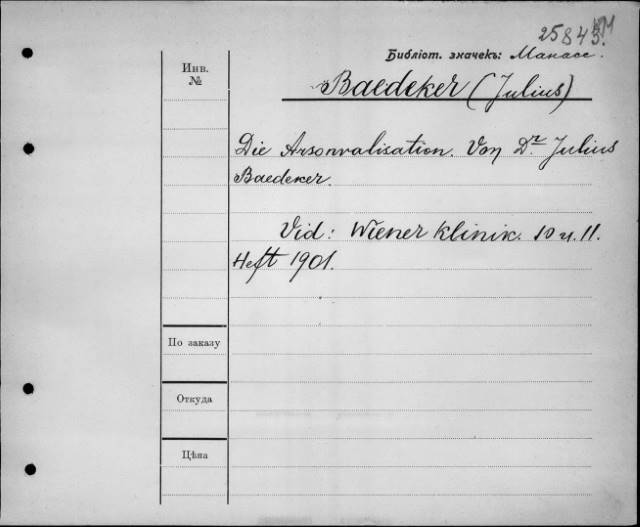 25843.
Библіот. значекъ: Манасс.
Инв. №
Baedeker (Julius)
Die Arsonvalisation. Von Dr. Julius
Baedeker.
Vid: Wiener Klinik. 10 u. 11.
Heft 1901.
По заказу
Откуда
Цѣна